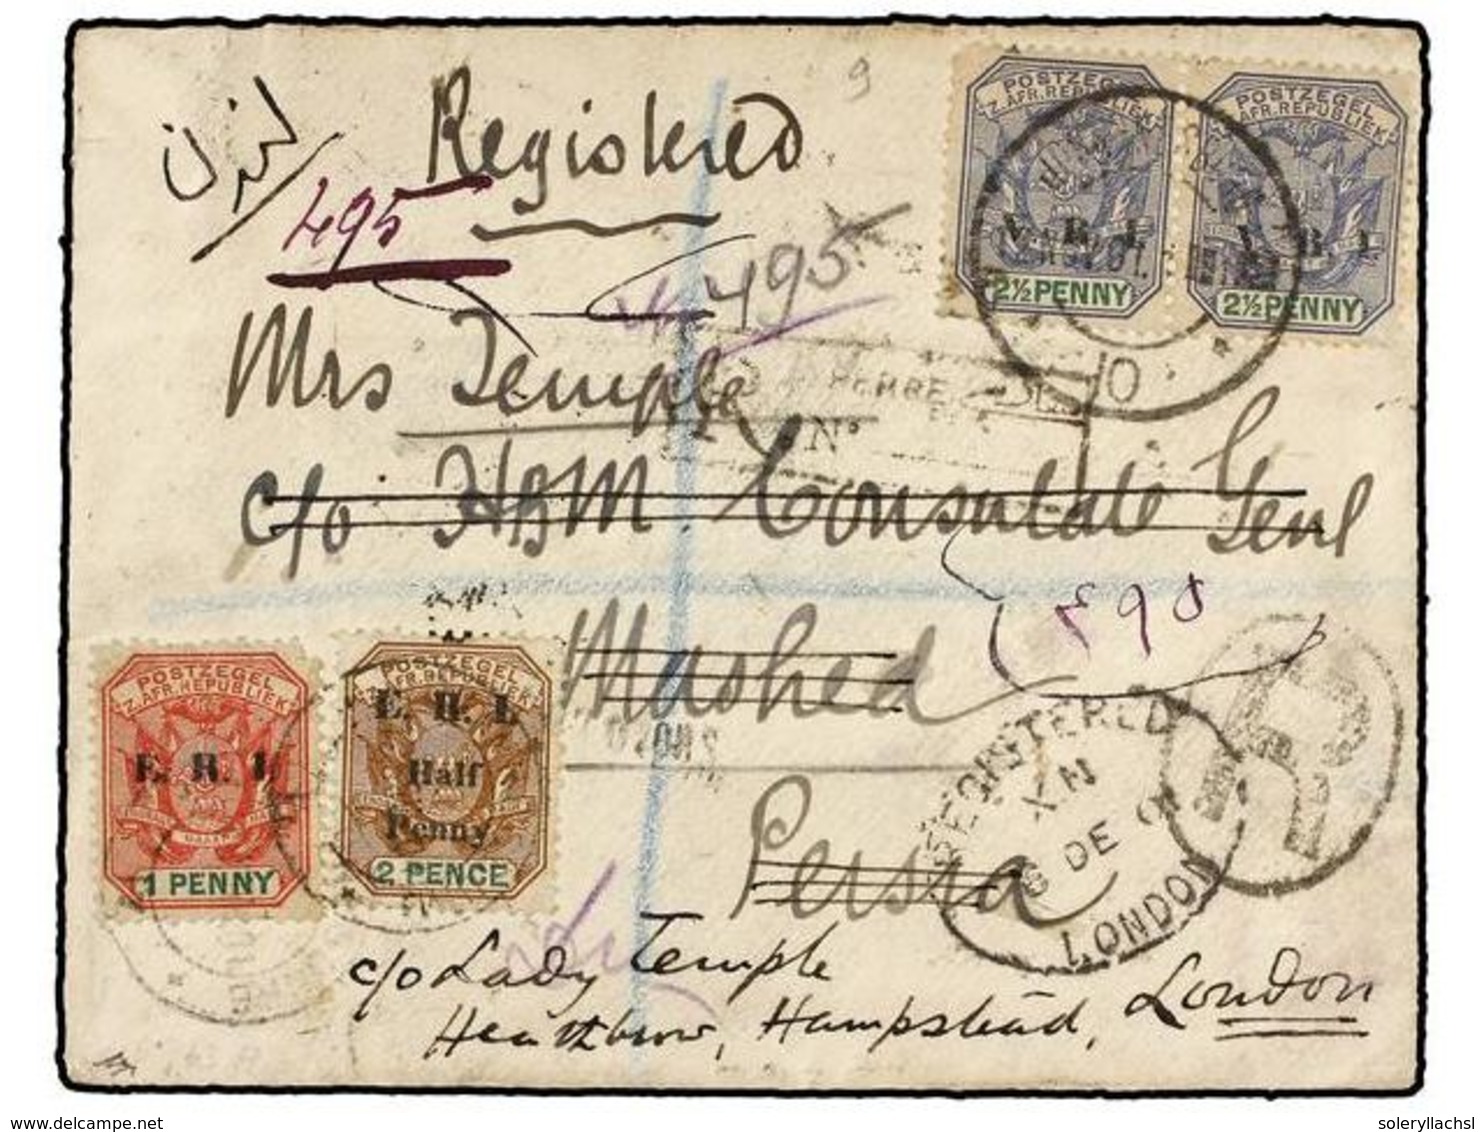 9
لندن
Registered
495
495
POSTZEGEL
Z.AFR.REPUBLIEK
V. R. I.
2½ PENNY
POSTZEGEL
Z.AFR.REPUBLIEK
V. R. I.
2½ PENNY
Mrs Temple
No
c/o HBM Consulate Genl
۴۹۵
Mashed
Persia
POSTZEGEL
Z.AFR.REPUBLIEK
E. R. I.
1 PENNY
POSTZEGEL
Z.AFR.REPUBLIEK
E. R. I.
Half
Penny
2 PENCE
R
REGISTERED
XN
6 DE 01
LONDON
c/o Lady Temple
Heathbrow, Hampstead, London
www.delcampe.net
soleryllachsl